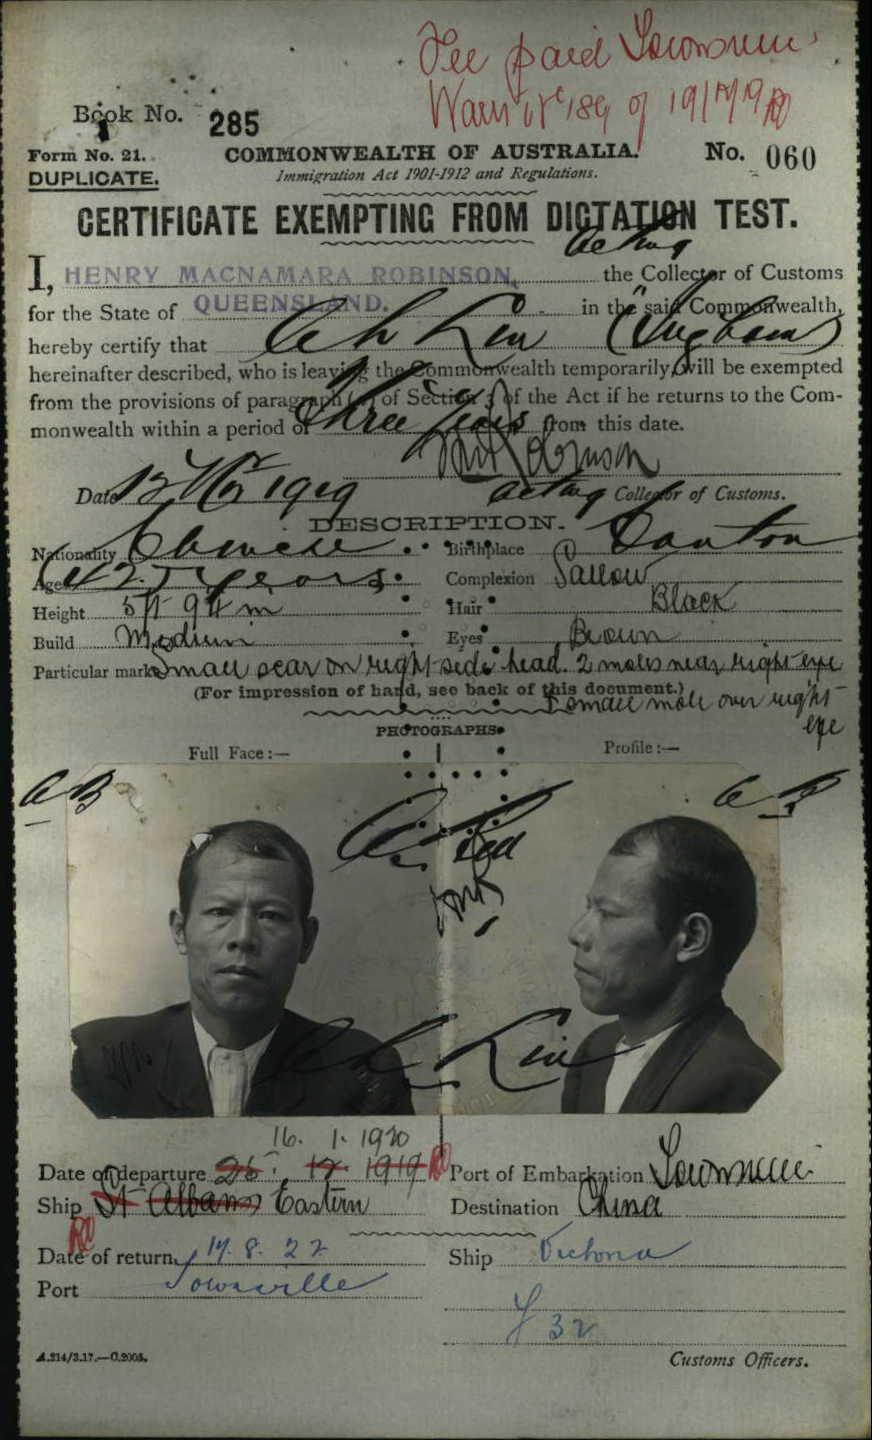 Fee paid Townsville
189 of
Book No. 285
Form No. 21. COMMONWEALTH OF AUSTRALIA. No. 060
DUPLICATE. Immigration Act 1901-1912 and Regulations.
CERTIFICATE EXEMPTING FROM DICTATION TEST.
acting
I, HENRY MACNAMARA ROBINSON, the Collector of Customs
for the State of QUEENSLAND. in the said Commonwealth,
hereby certify that Ah Lin (Ingham)
hereinafter described, who is leaving the Commonwealth temporarily, will be exempted
from the provisions of paragraph (a) of Section 3 of the Act if he returns to the Com-
monwealth within a period of three years from this date.
Robinson
Date 1919 acting Collector of Customs.
DESCRIPTION.
Nationality Chinese Birthplace Canton
Age 42 years Complexion Sallow
Height 5ft 9¼ in Hair Black
Build Medium Eyes Brown
Particular marks Small scar on right side head. 2 moles near right eye
(For impression of hand, see back of this document.)
1 small mole over right
eye
PHOTOGRAPHS.
Full Face:— Profile:—
Ah Lin
16. 1. 1920
Date of departure 26. 12. 1919 Port of Embarkation Townsville
Ship St Albans Eastern Destination China
Date of return 17. 8. 22 Ship Victoria
Port Townsville
32
A.214/3.17.—C.2005. Customs Officers.